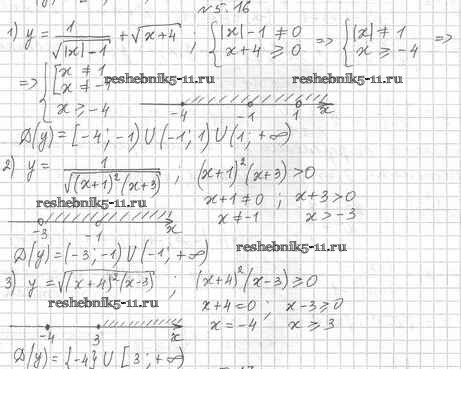 №5.16
1) y = 1/√(|x|-1) + √(x+4) ; { |x|-1 ≠ 0 => { |x| ≠ 1 =>
x+4 ≥ 0 x ≥ -4
=> { [ x ≠ 1
x ≠ -1
x ≥ -4
reshebnik5-11.ru reshebnik5-11.ru
-4 -1 1 x
D(y) = [-4; -1) ∪ (-1; 1) ∪ (1; +∞)
2) y = 1/√((x+1)²(x+3)) ; (x+1)²(x+3) > 0
x+1 ≠ 0 ; x+3 > 0
x ≠ -1 x > -3
reshebnik5-11.ru
-3 -1 x
reshebnik5-11.ru
D(y) = (-3; -1) ∪ (-1; +∞)
3) y = √((x+4)²(x-3)) ; (x+4)²(x-3) ≥ 0
reshebnik5-11.ru
x+4 = 0 ; x-3 ≥ 0
x = -4 x ≥ 3
-4 3 x
D(y) = {-4} ∪ [3; +∞)